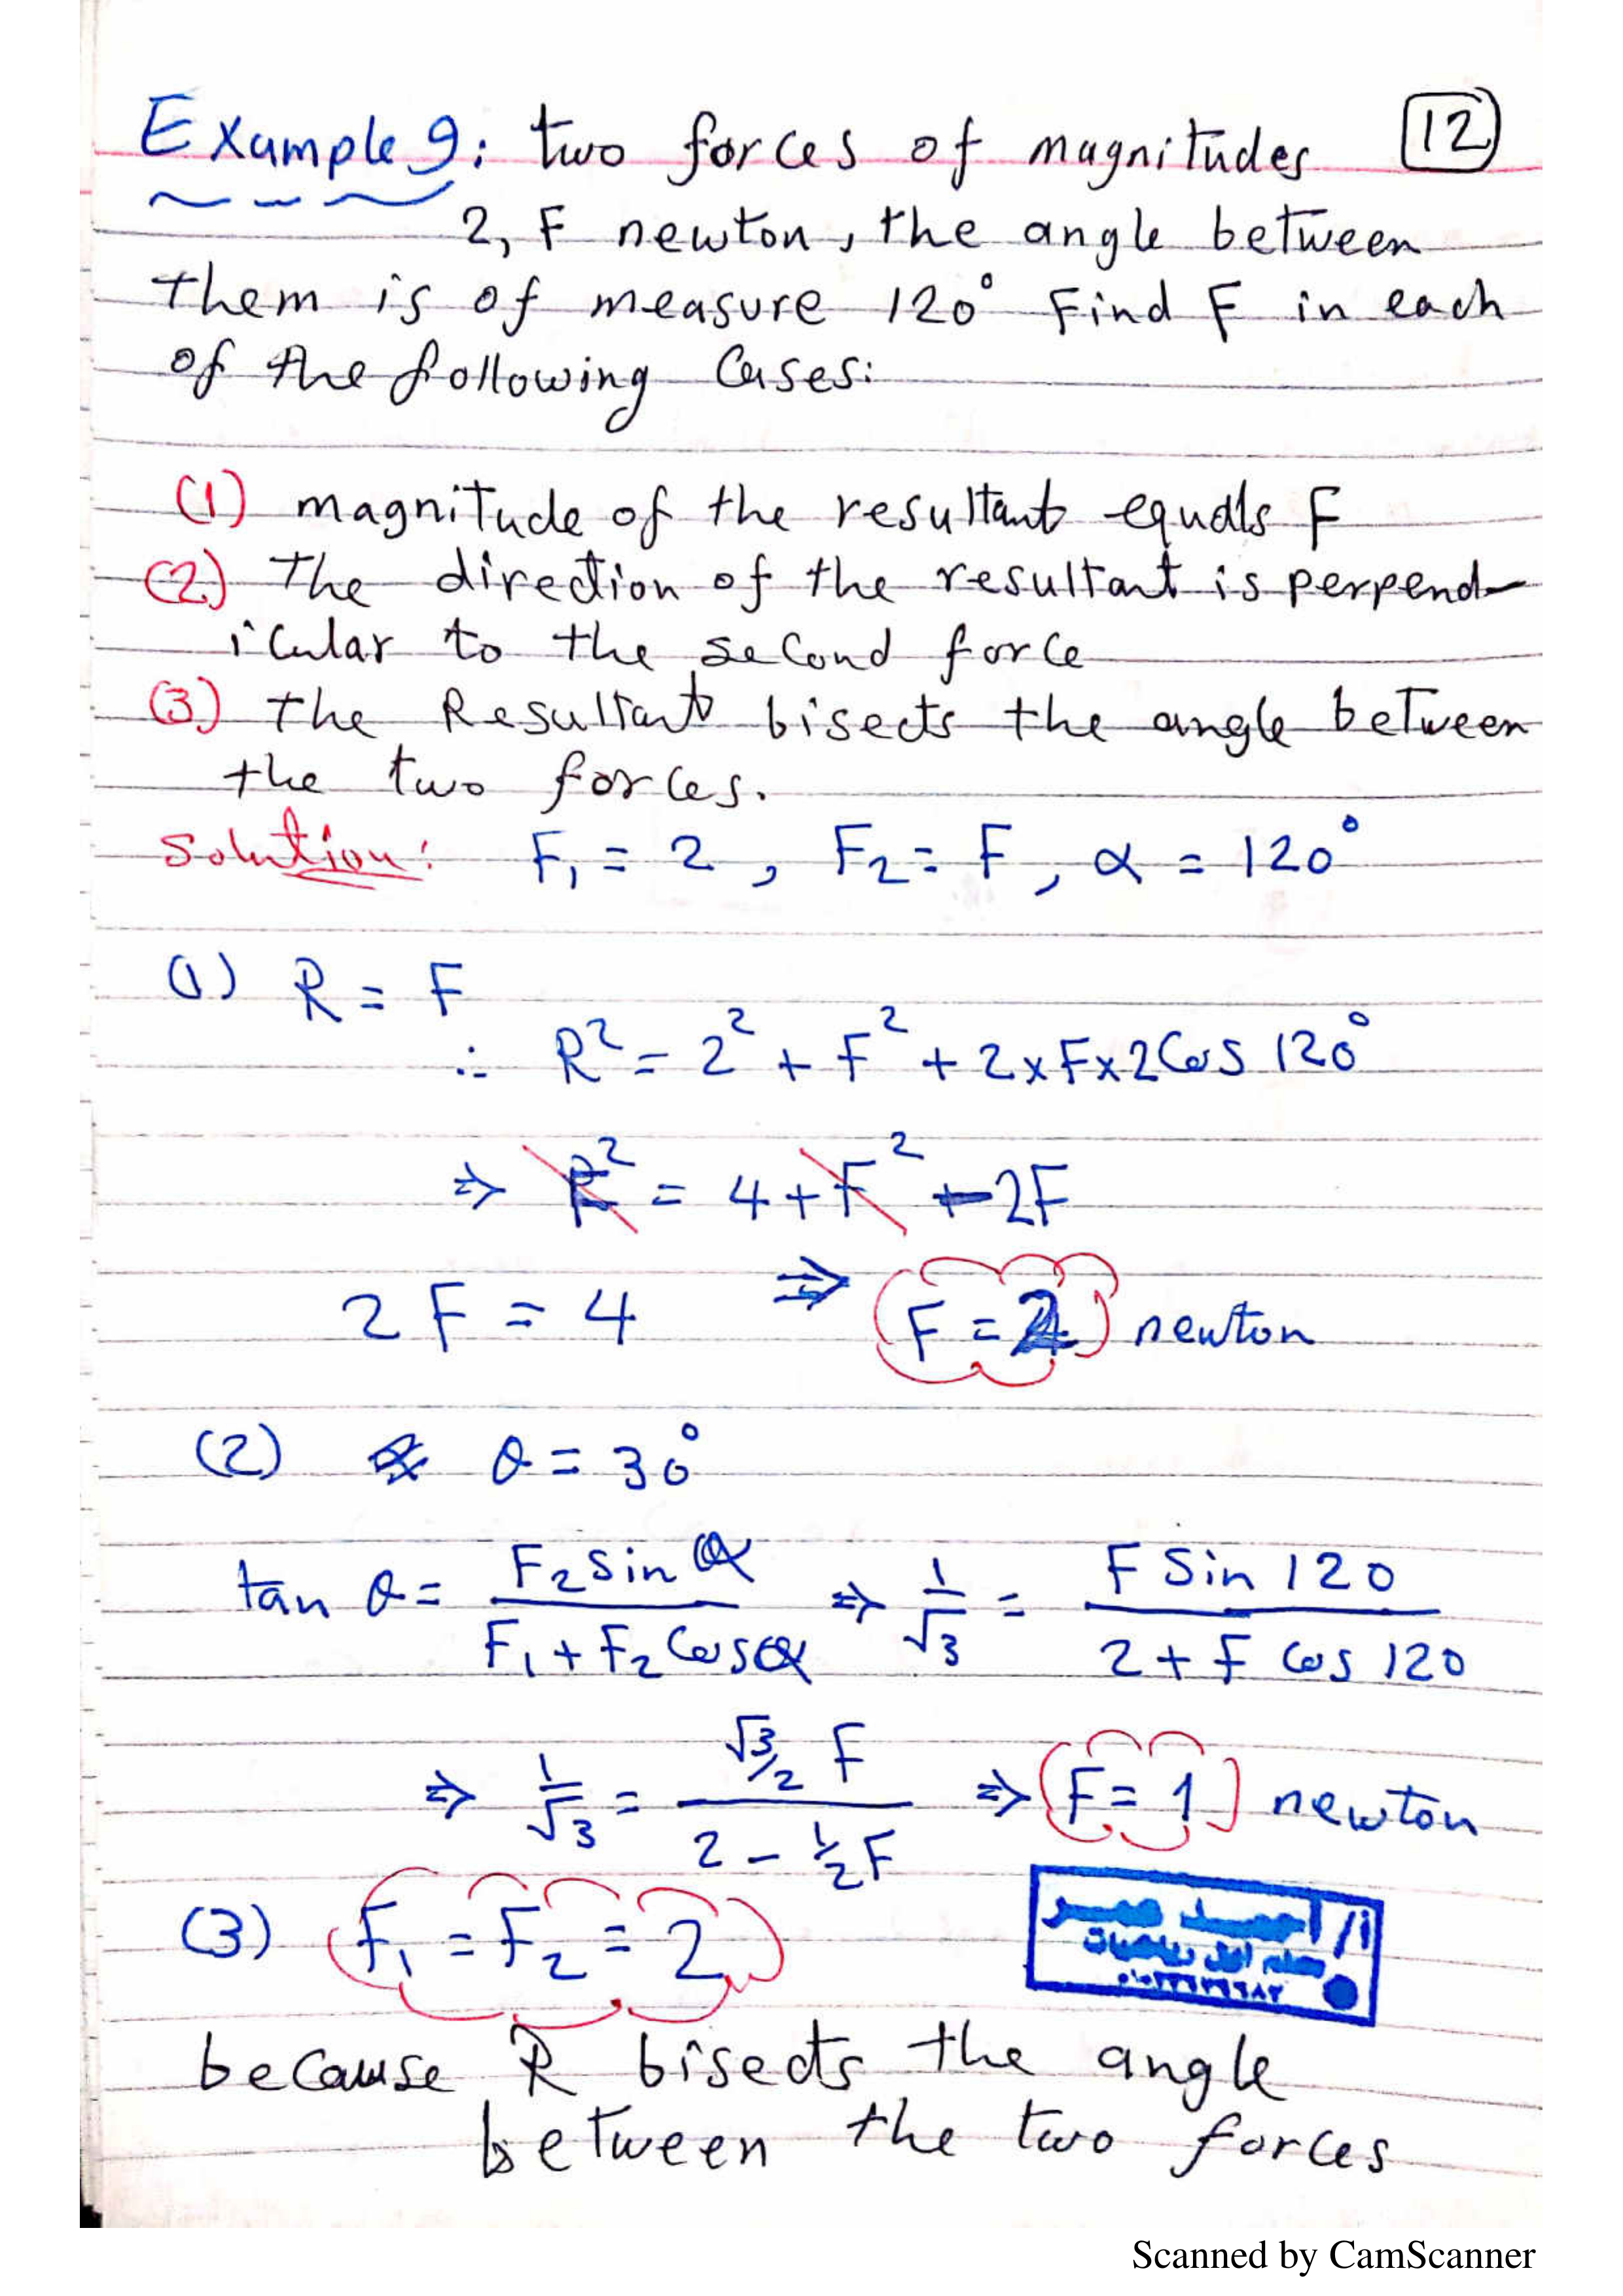 Example 9: two forces of magnitudes 12
2, F newton, the angle between
them is of measure 120° Find F in each
of the following Cases:
(1) magnitude of the resultant equals F
(2) The direction of the resultant is perpend-
icular to the second force
(3) the Resultant bisects the angle between
the two forces.
Solution: F₁ = 2 , F₂ = F , α = 120°
(1) R = F
∴ R² = 2² + F² + 2×F×2 Cos 120°
⇒ R² = 4 + F² - 2F
2F = 4 ⇒ F = 2 newton
(2) θ = 30°
tan θ = F₂ sin α / F₁ + F₂ Cos α ⇒ 1/√3 = F Sin 120 / 2 + F Cos 120
⇒ 1/√3 = √3/2 F / 2 - 1/2 F ⇒ F = 1 newton
(3) F₁ = F₂ = 2
أ/ أحمد عمر
معلم أول رياضيات
because R bisects the angle
between the two forces
Scanned by CamScanner